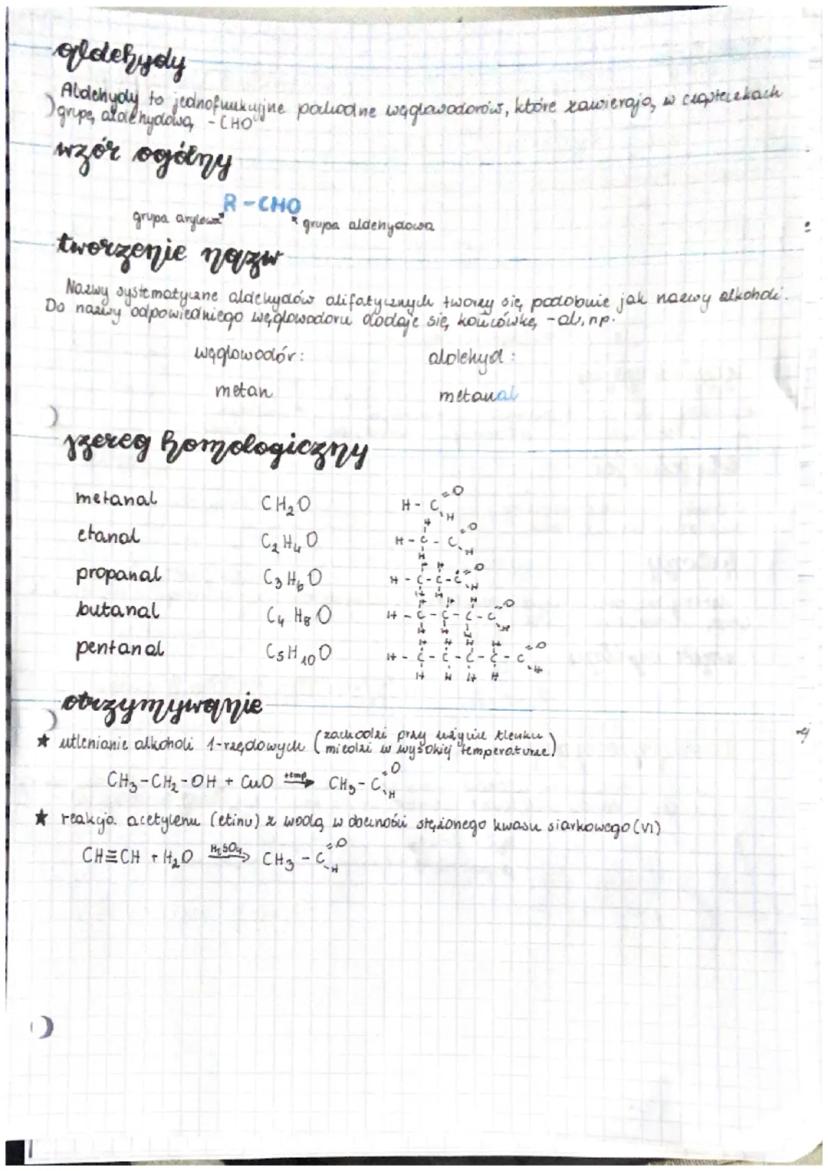 aldehydy
Aldehydy to jednofunkcyjne pochodne węglowodorów, które zawierają w cząsteczkach
grupę aldehydową -CHO
wzór ogólny
R-CHO
grupa arylowa grupa aldehydowa
tworzenie nazw
Nazwy systematyczne aldehydów alifatycznych tworzy się podobnie jak nazwy alkoholi.
Do nazwy odpowiedniego węglowodoru dodaje się końcówkę -al, np.
węglowodór: aldehyd:
metan metanal
szereg homologiczny
metanal CH₂O H-C=O H
etanal C₂H₄O H-C-C=O H H H
propanal C₃H₆O H-C-C-C=O H H H H H
butanal C₄H₈O H-C-C-C-C=O H H H H H H H
pentanal C₅H₁₀O H-C-C-C-C-C=O H H H H H H H H H
otrzymywanie
★ utlenianie alkoholi 1-rzędowych (zachodzi przy użyciu tlenku
miedzi w wysokiej temperaturze)
CH₃-CH₂-OH + CuO temp→ CH₃-C=O H
★ reakcja acetylenu (etinu) z wodą w obecności stężonego kwasu siarkowego (VI)
CH≡CH + H₂O H₂SO₄→ CH₃-C=O H